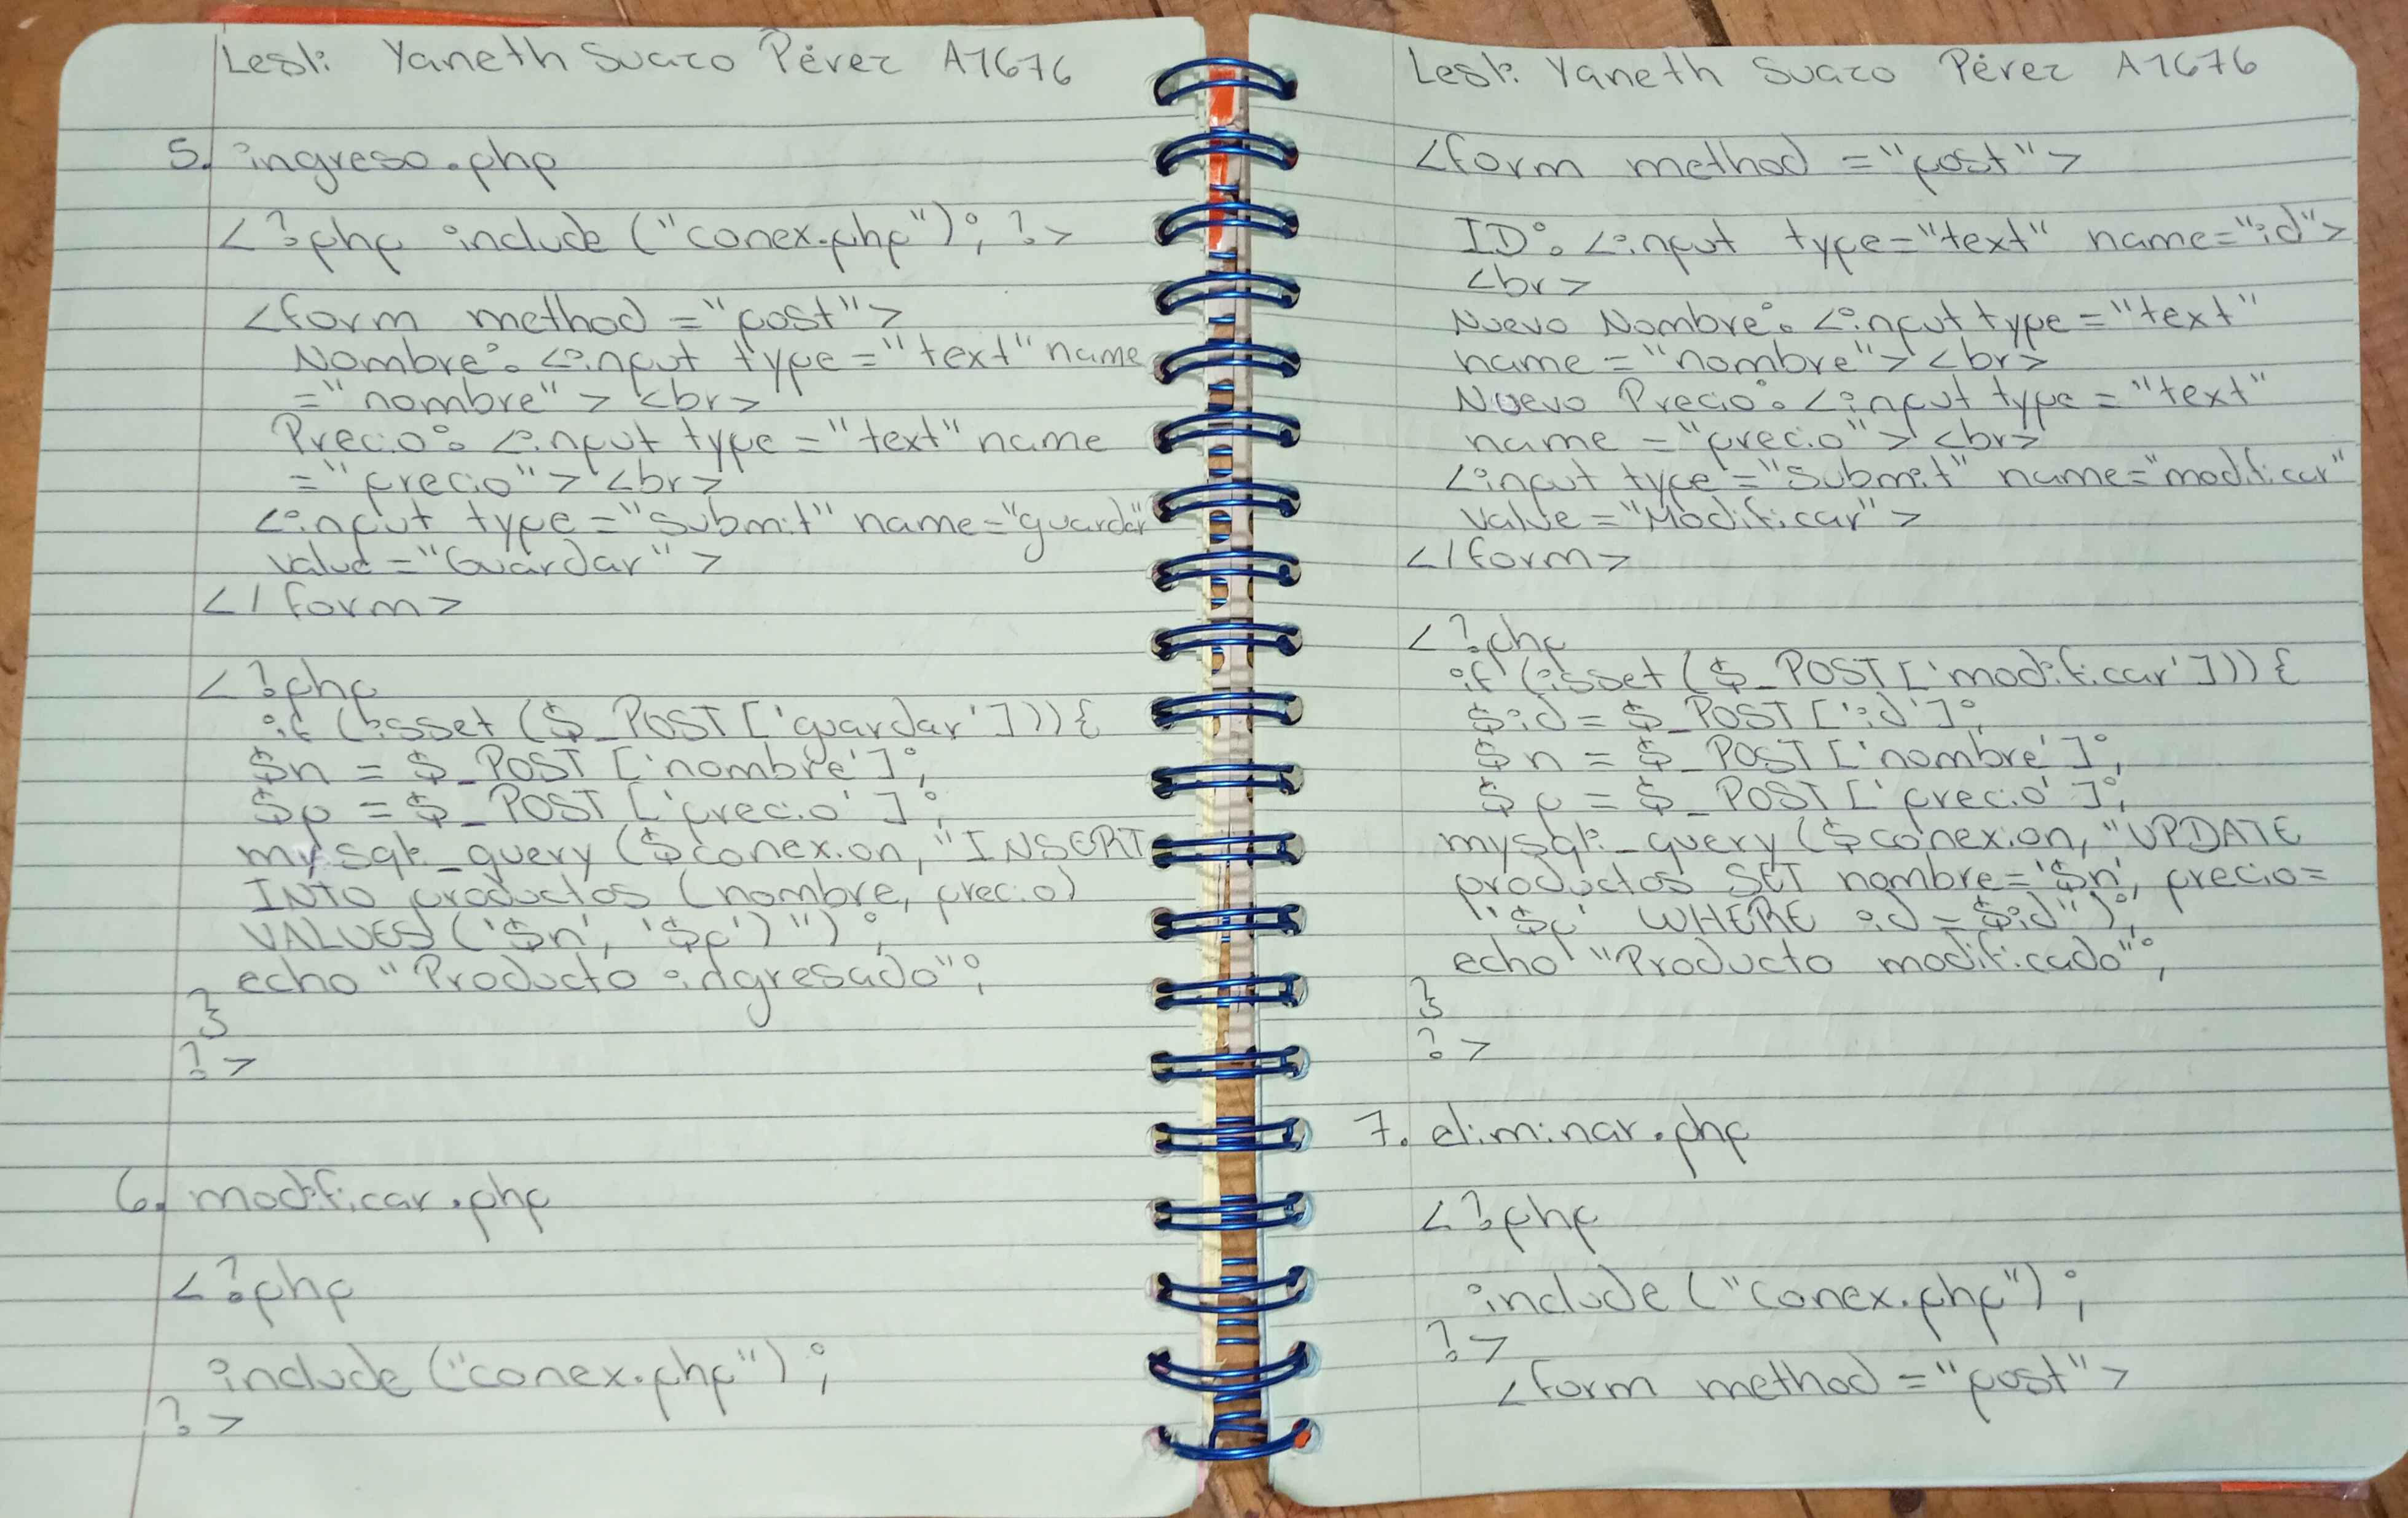 Lesli Yaneth Suazo Pérez A1676
5. ingreso.php
<?php include ("conex.php"); ?>
<form method ="post">
Nombre: <input type ="text" name
="nombre"> <br>
Precio: <input type ="text" name
="precio"> <br>
<input type ="submit" name="guardar"
value ="Guardar">
</form>
<?php
if (isset ($_POST ['guardar'])){
$n = $_POST ['nombre'];
$p = $_POST ['precio'];
mysqli_query ($conexion, "INSERT
INTO productos (nombre, precio)
VALUES ('$n', '$p')");
echo "Producto ingresado";
}
?>
6. modificar.php
<?php
include ("conex.php");
?>
Lesli Yaneth Suazo Pérez A1676
<form method ="post">
ID: <input type="text" name="id">
<br>
Nuevo Nombre: <input type ="text"
name ="nombre"> <br>
Nuevo Precio: <input type ="text"
name ="precio"> <br>
<input type ="submit" name="modificar"
value ="Modificar">
</form>
<?php
if (isset ($_POST ['modificar'])){
$id = $_POST ['id'];
$n = $_POST ['nombre'];
$p = $_POST ['precio'];
mysqli_query ($conexion, "UPDATE
productos SET nombre='$n', precio=
'$p' WHERE id = $id");
echo "Producto modificado";
}
?>
7. eliminar.php
<?php
include ("conex.php");
?>
<form method ="post">